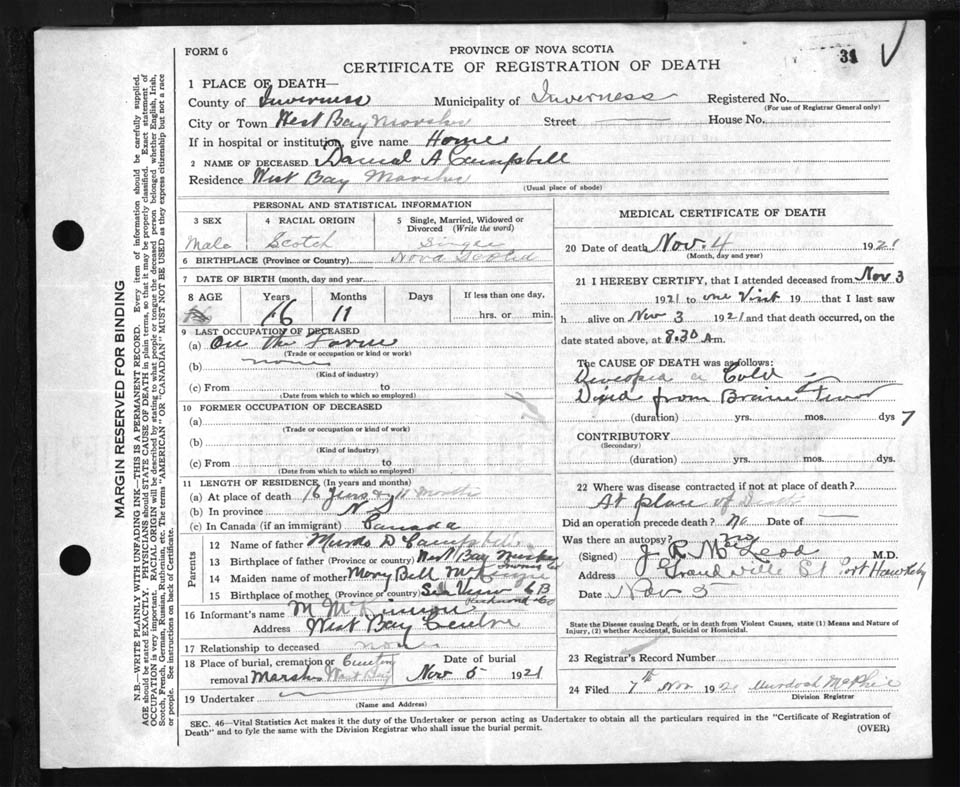 31
FORM 6
PROVINCE OF NOVA SCOTIA
CERTIFICATE OF REGISTRATION OF DEATH
1 PLACE OF DEATH—
County of Inverness Municipality of Inverness Registered No.
(For use of Registrar General only)
City or Town West Bay Street House No.
If in hospital or institution, give name Home
2 NAME OF DECEASED Daniel A Campbell
Residence West Bay
(Usual place of abode)
PERSONAL AND STATISTICAL INFORMATION
3 SEX 4 RACIAL ORIGIN 5 Single, Married, Widowed or Divorced (Write the word)
Male Scotch
6 BIRTHPLACE (Province or Country) Nova Scotia
7 DATE OF BIRTH (month, day and year)
8 AGE Years Months Days If less than one day,
16 11 hrs. or min.
9 LAST OCCUPATION OF DECEASED
(a) On the Farm
(Trade or occupation or kind or work)
(b) none
(Kind of industry)
(c) From to
(Date from which to which so employed)
10 FORMER OCCUPATION OF DECEASED
(a)
(Trade or occupation or kind of work)
(b)
(Kind of industry)
(c) From to
(Date from which to which so employed)
11 LENGTH OF RESIDENCE (In years and months)
(a) At place of death 16 years & 11 months
(b) In province N S
(c) In Canada (if an immigrant) Canada
Parents
12 Name of father Murdo D Campbell
13 Birthplace of father (Province or country) West Bay
14 Maiden name of mother Mary Bell
15 Birthplace of mother (Province or country) C B
Richmond Co
16 Informant's name M McKinnon
Address West Bay Centre
17 Relationship to deceased none
18 Place of burial, cremation or removal West Bay Date of burial Nov 5 1921
19 Undertaker
(Name and Address)
MEDICAL CERTIFICATE OF DEATH
20 Date of death Nov. 4 1921
(Month, day and year)
21 I HEREBY CERTIFY, that I attended deceased from Nov 3
1921 to one Visit 19 that I last saw
h alive on Nov 3 1921 and that death occurred, on the
date stated above, at 8.30 A m.
The CAUSE OF DEATH was as follows:
a Cold
Died from Brain
(duration) yrs. mos. dys 7
CONTRIBUTORY
(Secondary)
(duration) yrs. mos. dys.
22 Where was disease contracted if not at place of death?
At place of Death
Did an operation precede death? No Date of
Was there an autopsy? No
(Signed) J. R. McLeod M.D.
Address Grandville St Port Hawkesby
Date Nov 5
State the Disease causing Death, or in death from Violent Causes, state (1) Means and Nature of
Injury, (2) whether Accidental, Suicidal or Homicidal.
23 Registrar's Record Number
24 Filed 7th Nov 1921 Murdoch McPhie
Division Registrar
SEC. 46—Vital Statistics Act makes it the duty of the Undertaker or person acting as Undertaker to obtain all the particulars required in the "Certificate of Registration of
Death" and to fyle the same with the Division Registrar who shall issue the burial permit.
(OVER)
MARGIN RESERVED FOR BINDING
N.B.—WRITE PLAINLY WITH UNFADING INK—THIS IS A PERMANENT RECORD. Every item of information should be carefully supplied.
AGE should be stated EXACTLY. PHYSICIANS should STATE CAUSE OF DEATH in plain terms, so that it may be properly classified. Exact statement of
OCCUPATION is very important. RACIAL ORIGIN will be described by stating to what people or tongue the deceased person belonged whether English, Irish,
Scotch, French, German, Russian, Ruthenian, etc. The terms "AMERICAN" OR "CANADIAN" MUST NOT BE USED as they express citizenship but not a race
or people. See instructions on back of Certificate.